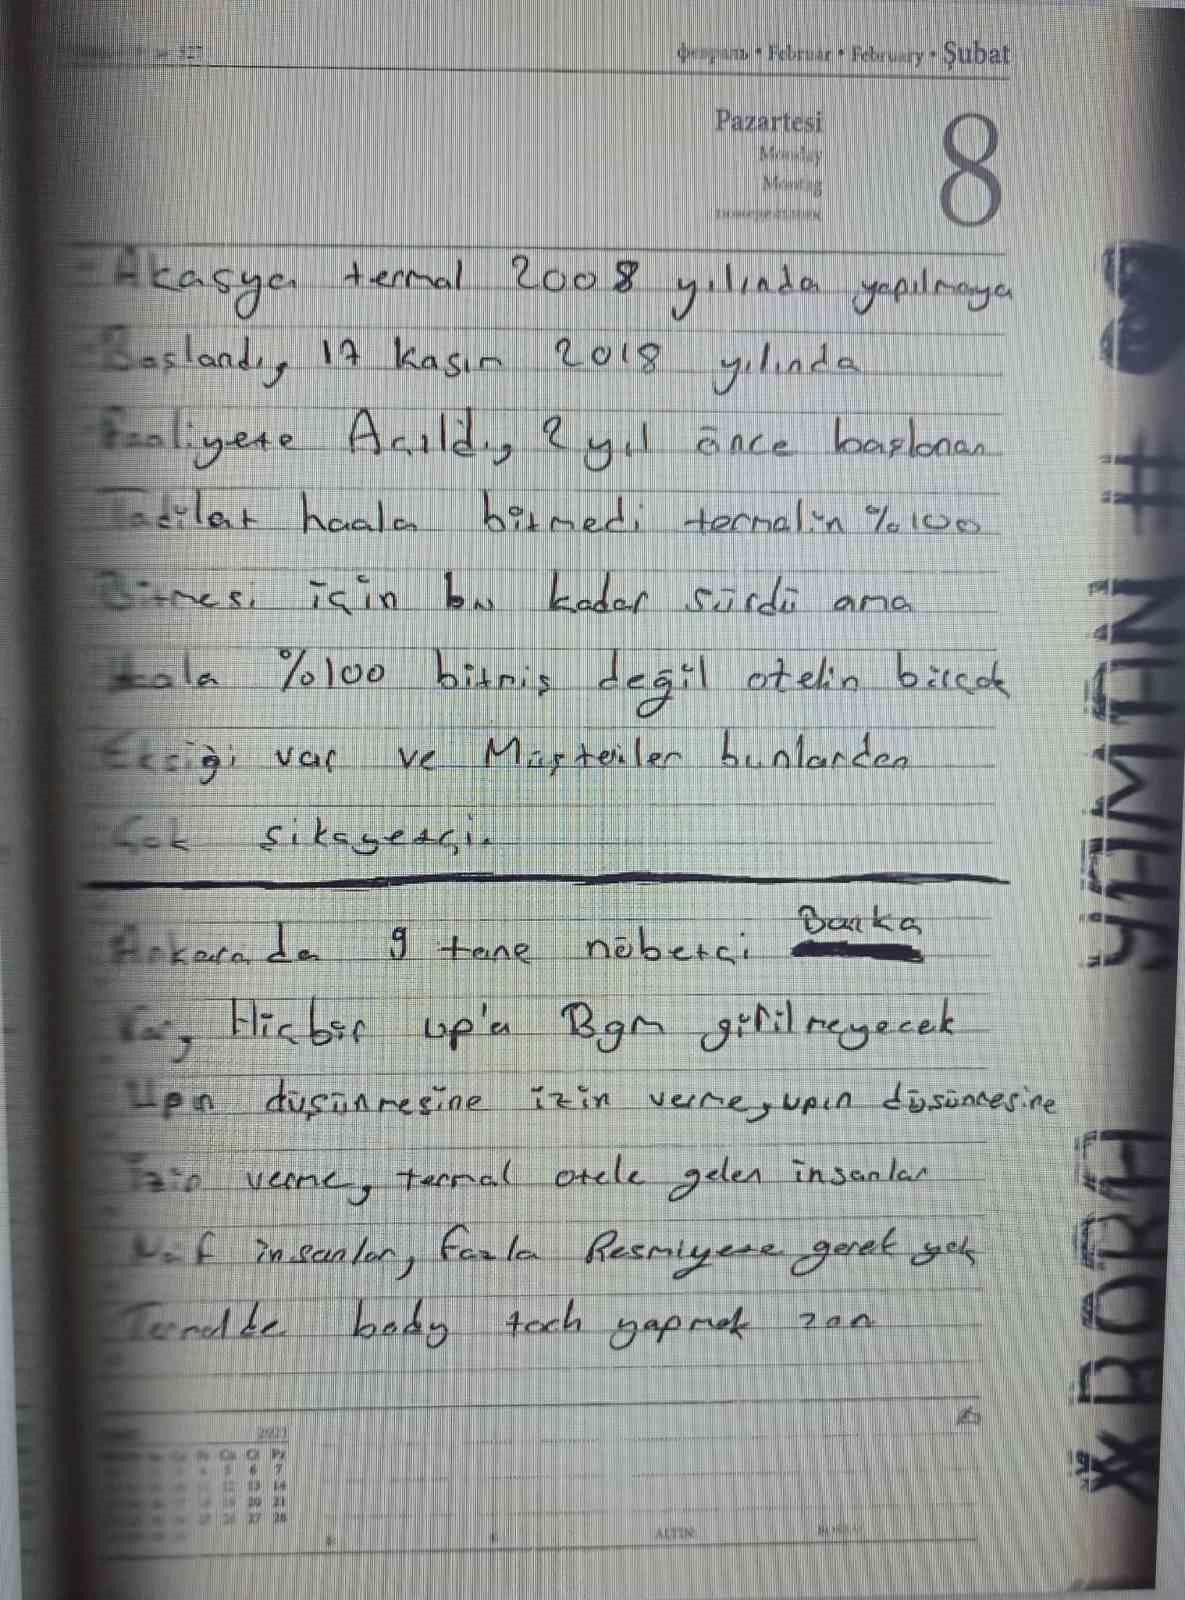 февраль • Februar • February • Şubat
Pazartesi
Monday
Montag
8
Akasya termal 2008 yılında yapılmaya
Başlandı, 17 kasım 2018 yılında
Faaliyete Açıldı, 2 yıl önce başlanan
Tadilat haala bitmedi termalin %100
Bitmesi için bu kadar sürdü ama
Hala %100 bitmiş değil otelin birçok
Eksiği var ve Müşteriler bunlardan
Çok şikayetçi.
Ankarada 9 tane nöbetçi Banka
Var, Hiçbir up'a Bgm girilmeyecek
Upın düşünmesine izin verme, upın düşüncesine
İzin verme, termal otele gelen insanlar
Naif insanlar, fazla Resmiyete gerek yok
Termalde body toch yapmak zor
2021
5 6 7
12 13 14
19 20 21
26 27 28
ALTIN